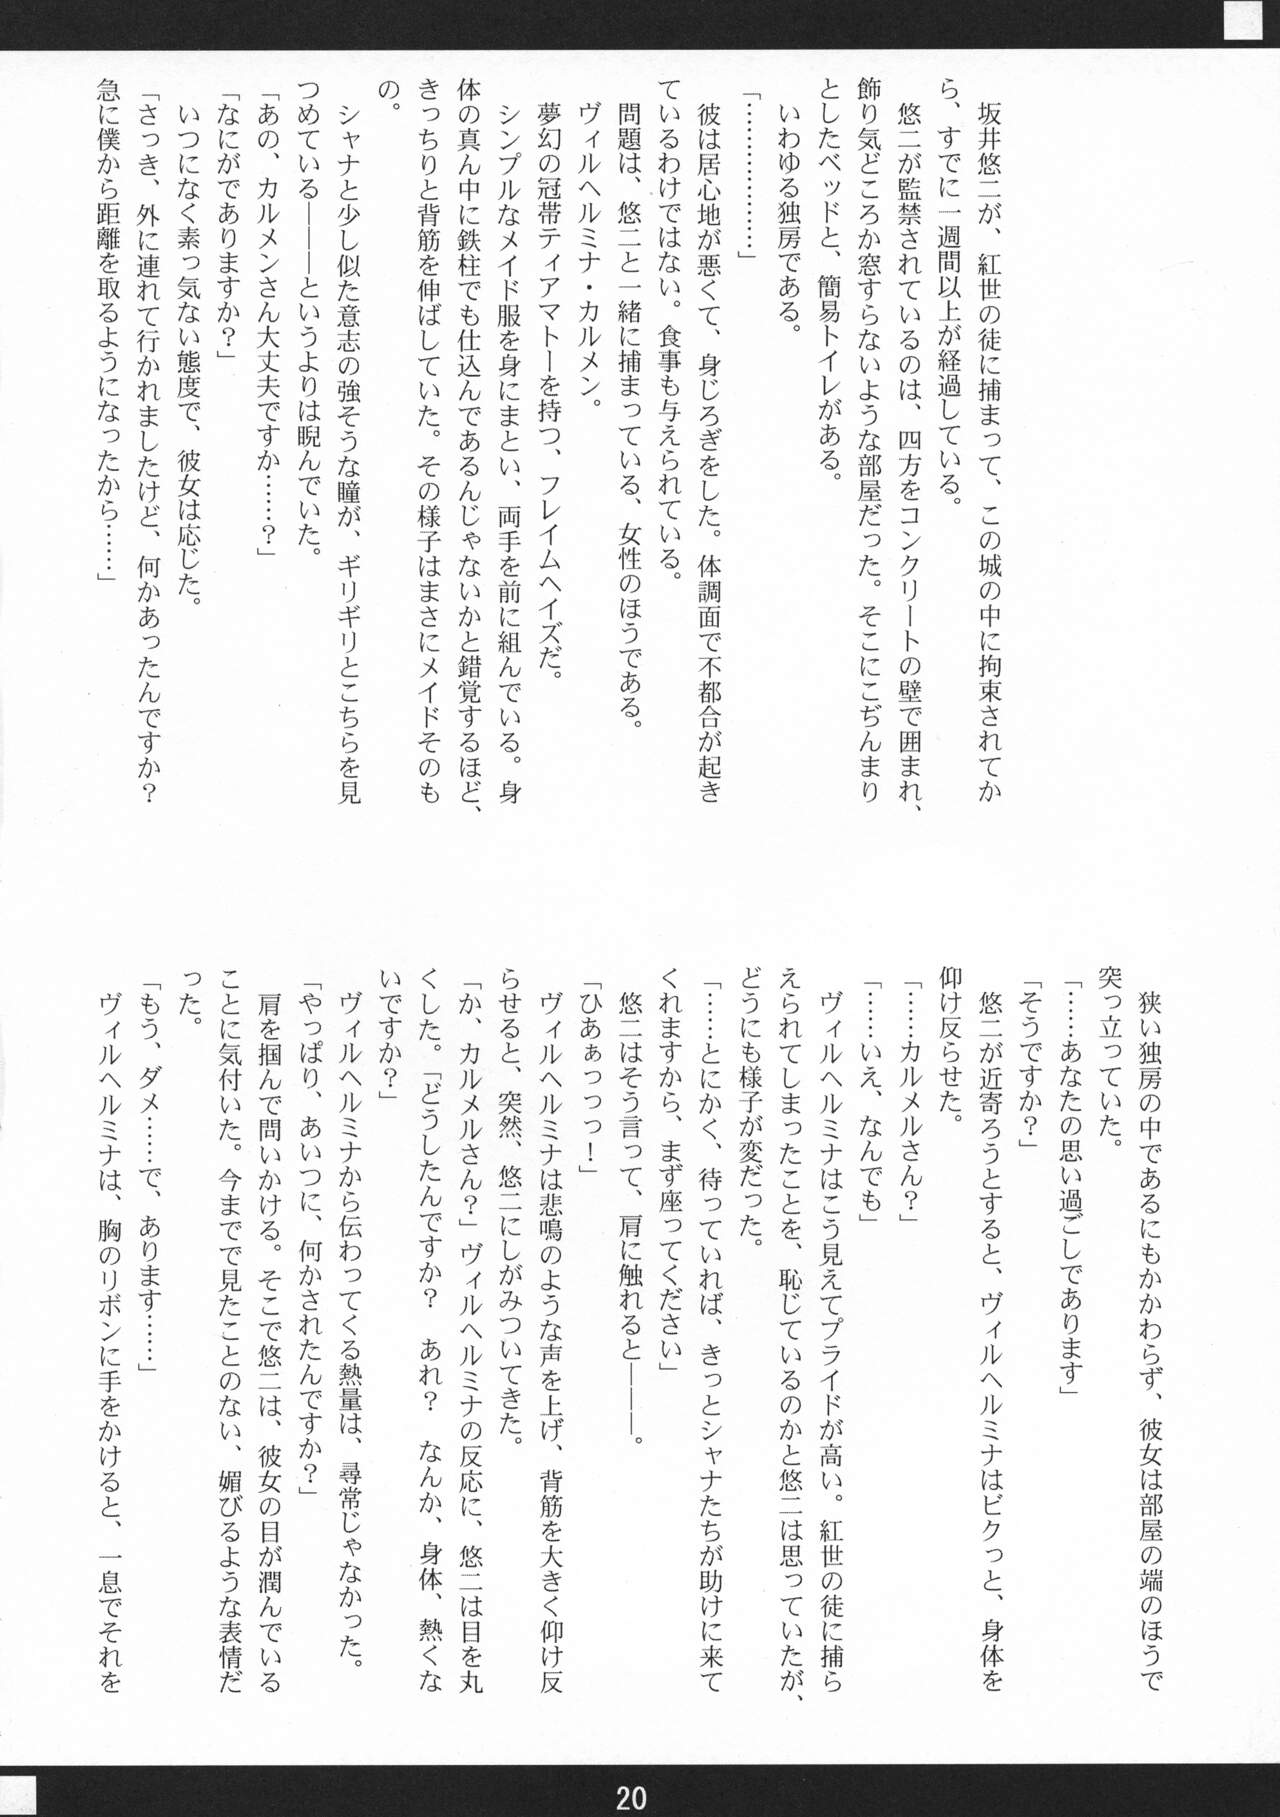 坂井悠二が、紅世の徒に捕まって、この城の中に拘束されてか
ら、すでに一週間以上が経過している。
悠二が監禁されているのは、四方をコンクリートの壁で囲まれ、
飾り気どころか窓すらないような部屋だった。そこにこぢんまり
としたベッドと、簡易トイレがある。
いわゆる独房である。
「………………」
彼は居心地が悪くて、身じろぎをした。体調面で不都合が起き
ているわけではない。食事も与えられている。
問題は、悠二と一緒に捕まっている、女性のほうである。
ヴィルヘルミナ・カルメン。
夢幻の冠帯ティアマトーを持つ、フレイムヘイズだ。
シンプルなメイド服を身にまとい、両手を前に組んでいる。身
体の真ん中に鉄柱でも仕込んであるんじゃないかと錯覚するほど、
きっちりと背筋を伸ばしていた。その様子はまさにメイドそのも
の。
シャナと少し似た意志の強そうな瞳が、ギリギリとこちらを見
つめている―――というよりは睨んでいた。
「あの、カルメンさん大丈夫ですか……？」
「なにがでありますか？」
いつになく素っ気ない態度で、彼女は応じた。
「さっき、外に連れて行かれましたけど、何かあったんですか？
急に僕から距離を取るようになったから……」
狭い独房の中であるにもかかわらず、彼女は部屋の端のほうで
突っ立っていた。
「……あなたの思い過ごしであります」
「そうですか？」
悠二が近寄ろうとすると、ヴィルヘルミナはビクっと、身体を
仰け反らせた。
「……カルメルさん？」
「……いえ、なんでも」
ヴィルヘルミナはこう見えてプライドが高い。紅世の徒に捕ら
えられてしまったことを、恥じているのかと悠二は思っていたが、
どうにも様子が変だった。
「……とにかく、待っていれば、きっとシャナたちが助けに来て
くれますから、まず座ってください」
悠二はそう言って、肩に触れると―――。
「ひあぁっっっ！」
ヴィルヘルミナは悲鳴のような声を上げ、背筋を大きく仰け反
らせると、突然、悠二にしがみついてきた。
「か、カルメルさん？」ヴィルヘルミナの反応に、悠二は目を丸
くした。「どうしたんですか？　あれ？　なんか、身体、熱くな
いですか？」
ヴィルヘルミナから伝わってくる熱量は、尋常じゃなかった。
「やっぱり、あいつに、何かされたんですか？」
肩を掴んで問いかける。そこで悠二は、彼女の目が潤んでいる
ことに気付いた。今までで見たことのない、媚びるような表情だ
った。
「もう、ダメ……で、あります……」
ヴィルヘルミナは、胸のリボンに手をかけると、一息でそれを
20